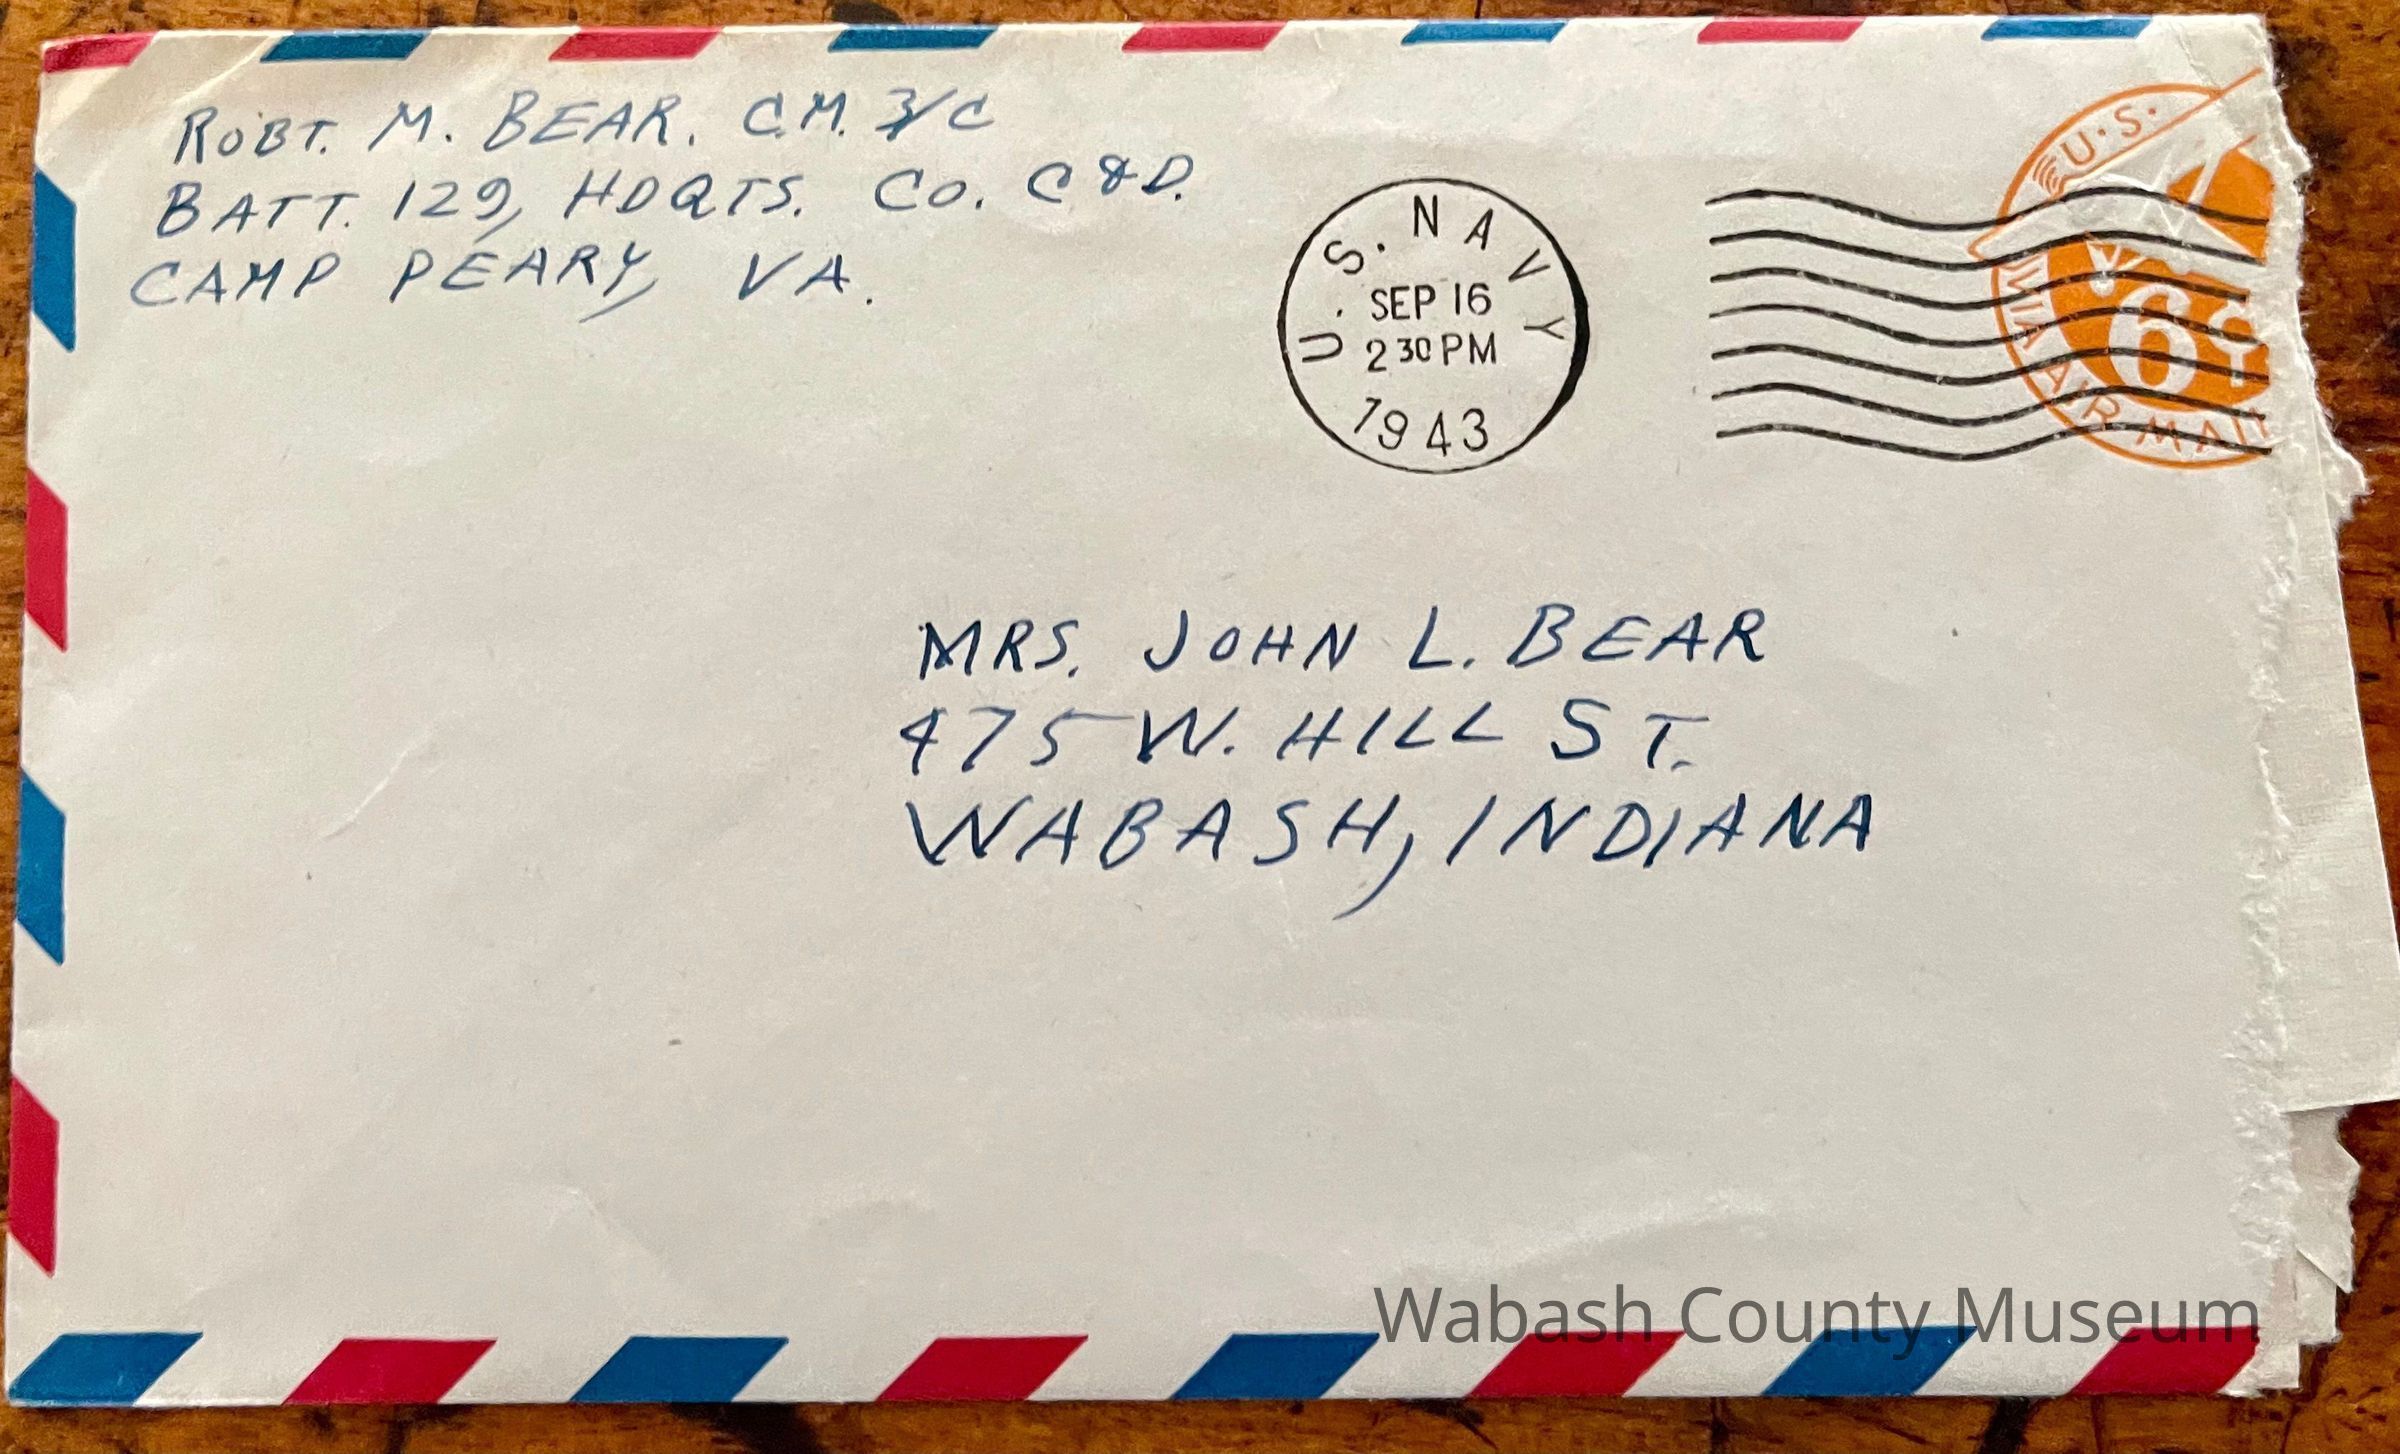 ROBT. M. BEAR. C.M. 3/C
BATT. 129, HDQTS. CO. C & D.
CAMP PEARY, VA.
U.S. NAVY
SEP 16
2 30 PM
1943
U.S.
AIR MAIL
6¢
MRS. JOHN L. BEAR
475 W. HILL ST.
WABASH, INDIANA
Wabash County Museum